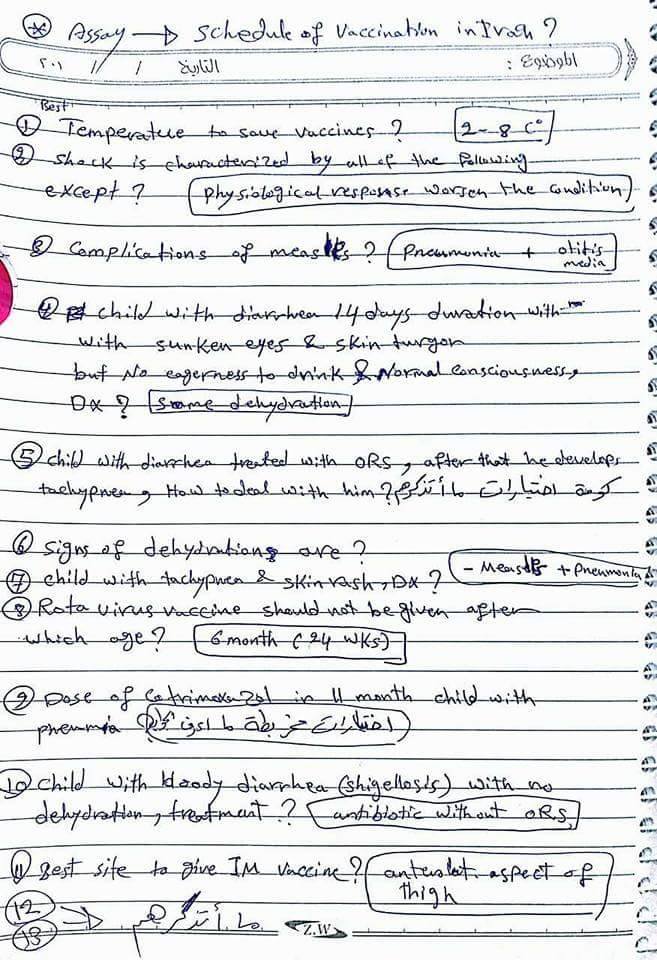 * Assay → Schedule of Vaccination in Iraq ?
الموضوع : التاريخ / / ٢٠١
Best
① Temperature to save vaccines ? 2-8 C°
② Shock is characterized by all of the following
except ? physiological response worsen the condition
③ Complications of measles ? pneumonia + otitis media
④ child with diarrhea 14 days duration with
with sunken eyes & skin turgor
but No eagerness to drink & Normal consciousness,
DX ? some dehydration
⑤ child with diarrhea treated with ORS, after that he develops
tachypnea, How to deal with him? كومة اختيارات ما أتذكرهم
⑥ signs of dehydration are ?
⑦ child with tachypnea & skin rash, DX ? - Measles + pneumonia
⑧ Rota virus vaccine should not be given after
which age ? 6 month (24 wks)
⑨ Dose of Cotrimoxazol in 11 month child with
pneumnia اختيارات مخربطة ما اعرف
⑩ child with bloody diarrhea (shigellosis) with no
dehydration, treatment ? antibiotic without ORS
⑪ Best site to give IM vaccine ? anterolat. aspect of
thigh
⑫
⑬ → ما أتذكرهم
Z.W